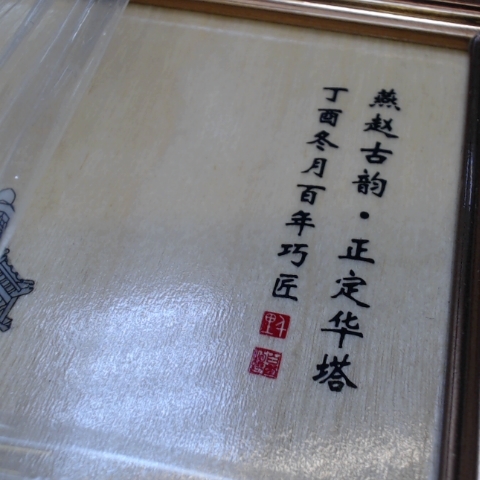 燕赵古韵·正定华塔
丁酉冬月百年巧匠